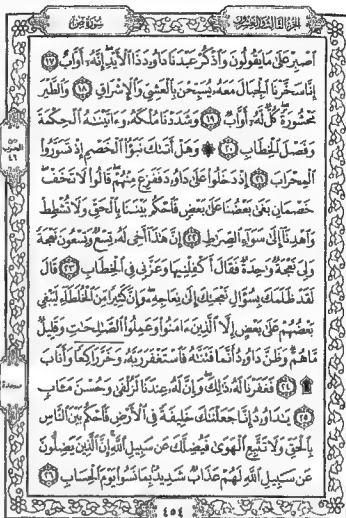 الجزء الثالث والعشرون سورة ص
ٱصْبِرْ عَلَىٰ مَا يَقُولُونَ وَٱذْكُرْ عَبْدَنَا دَاوُۥدَ ذَا ٱلْأَيْدِ إِنَّهُۥٓ أَوَّابٌ ١٧
إِنَّا سَخَّرْنَا ٱلْجِبَالَ مَعَهُۥ يُسَبِّحْنَ بِٱلْعَشِىِّ وَٱلْإِشْرَاقِ ١٨ وَٱلطَّيْرَ
مَحْشُورَةً كُلٌّ لَّهُۥٓ أَوَّابٌ ١٩ وَشَدَدْنَا مُلْكَهُۥ وَءَاتَيْنَٰهُ ٱلْحِكْمَةَ
وَفَصْلَ ٱلْخِطَابِ ٢٠ ۞ وَهَلْ أَتَىٰكَ نَبَؤُا۟ ٱلْخَصْمِ إِذْ تَسَوَّرُوا۟
ٱلْمِحْرَابَ ٢١ إِذْ دَخَلُوا۟ عَلَىٰ دَاوُۥدَ فَفَزِعَ مِنْهُمْ قَالُوا۟ لَا تَخَفْ
خَصْمَانِ بَغَىٰ بَعْضُنَا عَلَىٰ بَعْضٍ فَٱحْكُم بَيْنَنَا بِٱلْحَقِّ وَلَا تُشْطِطْ
وَٱهْدِنَآ إِلَىٰ سَوَآءِ ٱلصِّرَٰطِ ٢٢ إِنَّ هَٰذَآ أَخِى لَهُۥ تِسْعٌ وَتِسْعُونَ نَعْجَةً
وَلِىَ نَعْجَةٌ وَٰحِدَةٌ فَقَالَ أَكْفِلْنِيهَا وَعَزَّنِى فِى ٱلْخِطَابِ ٢٣ قَالَ
لَقَدْ ظَلَمَكَ بِسُؤَالِ نَعْجَتِكَ إِلَىٰ نِعَاجِهِۦ وَإِنَّ كَثِيرًا مِّنَ ٱلْخُلَطَآءِ لَيَبْغِى
بَعْضُهُمْ عَلَىٰ بَعْضٍ إِلَّا ٱلَّذِينَ ءَامَنُوا۟ وَعَمِلُوا۟ ٱلصَّٰلِحَٰتِ وَقَلِيلٌ
مَّا هُمْ وَظَنَّ دَاوُۥدُ أَنَّمَا فَتَنَّٰهُ فَٱسْتَغْفَرَ رَبَّهُۥ وَخَرَّ رَاكِعًا وَأَنَابَ
۩ ٢٤ فَغَفَرْنَا لَهُۥ ذَٰلِكَ وَإِنَّ لَهُۥ عِندَنَا لَزُلْفَىٰ وَحُسْنَ مَـَٔابٍ
٢٥ يَٰدَاوُۥدُ إِنَّا جَعَلْنَٰكَ خَلِيفَةً فِى ٱلْأَرْضِ فَٱحْكُم بَيْنَ ٱلنَّاسِ
بِٱلْحَقِّ وَلَا تَتَّبِعِ ٱلْهَوَىٰ فَيُضِلَّكَ عَن سَبِيلِ ٱللَّهِ إِنَّ ٱلَّذِينَ يَضِلُّونَ
عَن سَبِيلِ ٱللَّهِ لَهُمْ عَذَابٌ شَدِيدٌۢ بِمَا نَسُوا۟ يَوْمَ ٱلْحِسَابِ ٢٦
الحزب
٤٦
سجدة
٤٥٤